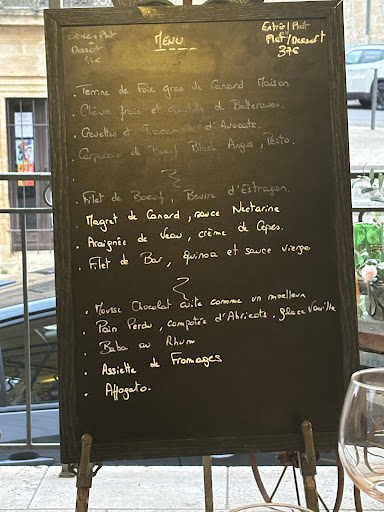 Entrée + Plat
+
Dessert
MENU
Entrée / Plat
ou
Plat / Dessert
37€
. Terrine de Foie gras de Canard Maison
. Chèvre frais et de Betteraves.
. Crevettes et d'Avocats.
. Carpaccio de Boeuf Black Angus, Pesto.
. Filet de Boeuf, Beurre d'Estragon.
. Magret de Canard, sauce Nectarine
. Araignée de Veau, crème de Cèpes.
. Filet de Bar, Quinoa et sauce vierge
. Mousse Chocolat cuite comme un moelleux
. Pain Perdu, compotée d'Abricots, glace Vanille
. Baba au Rhum
. Assiette de Fromages
. Affogato.